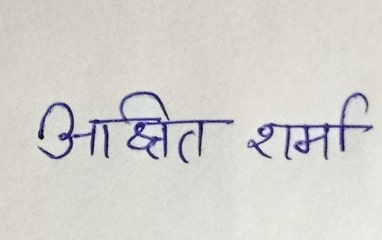 आक्षित शर्मा